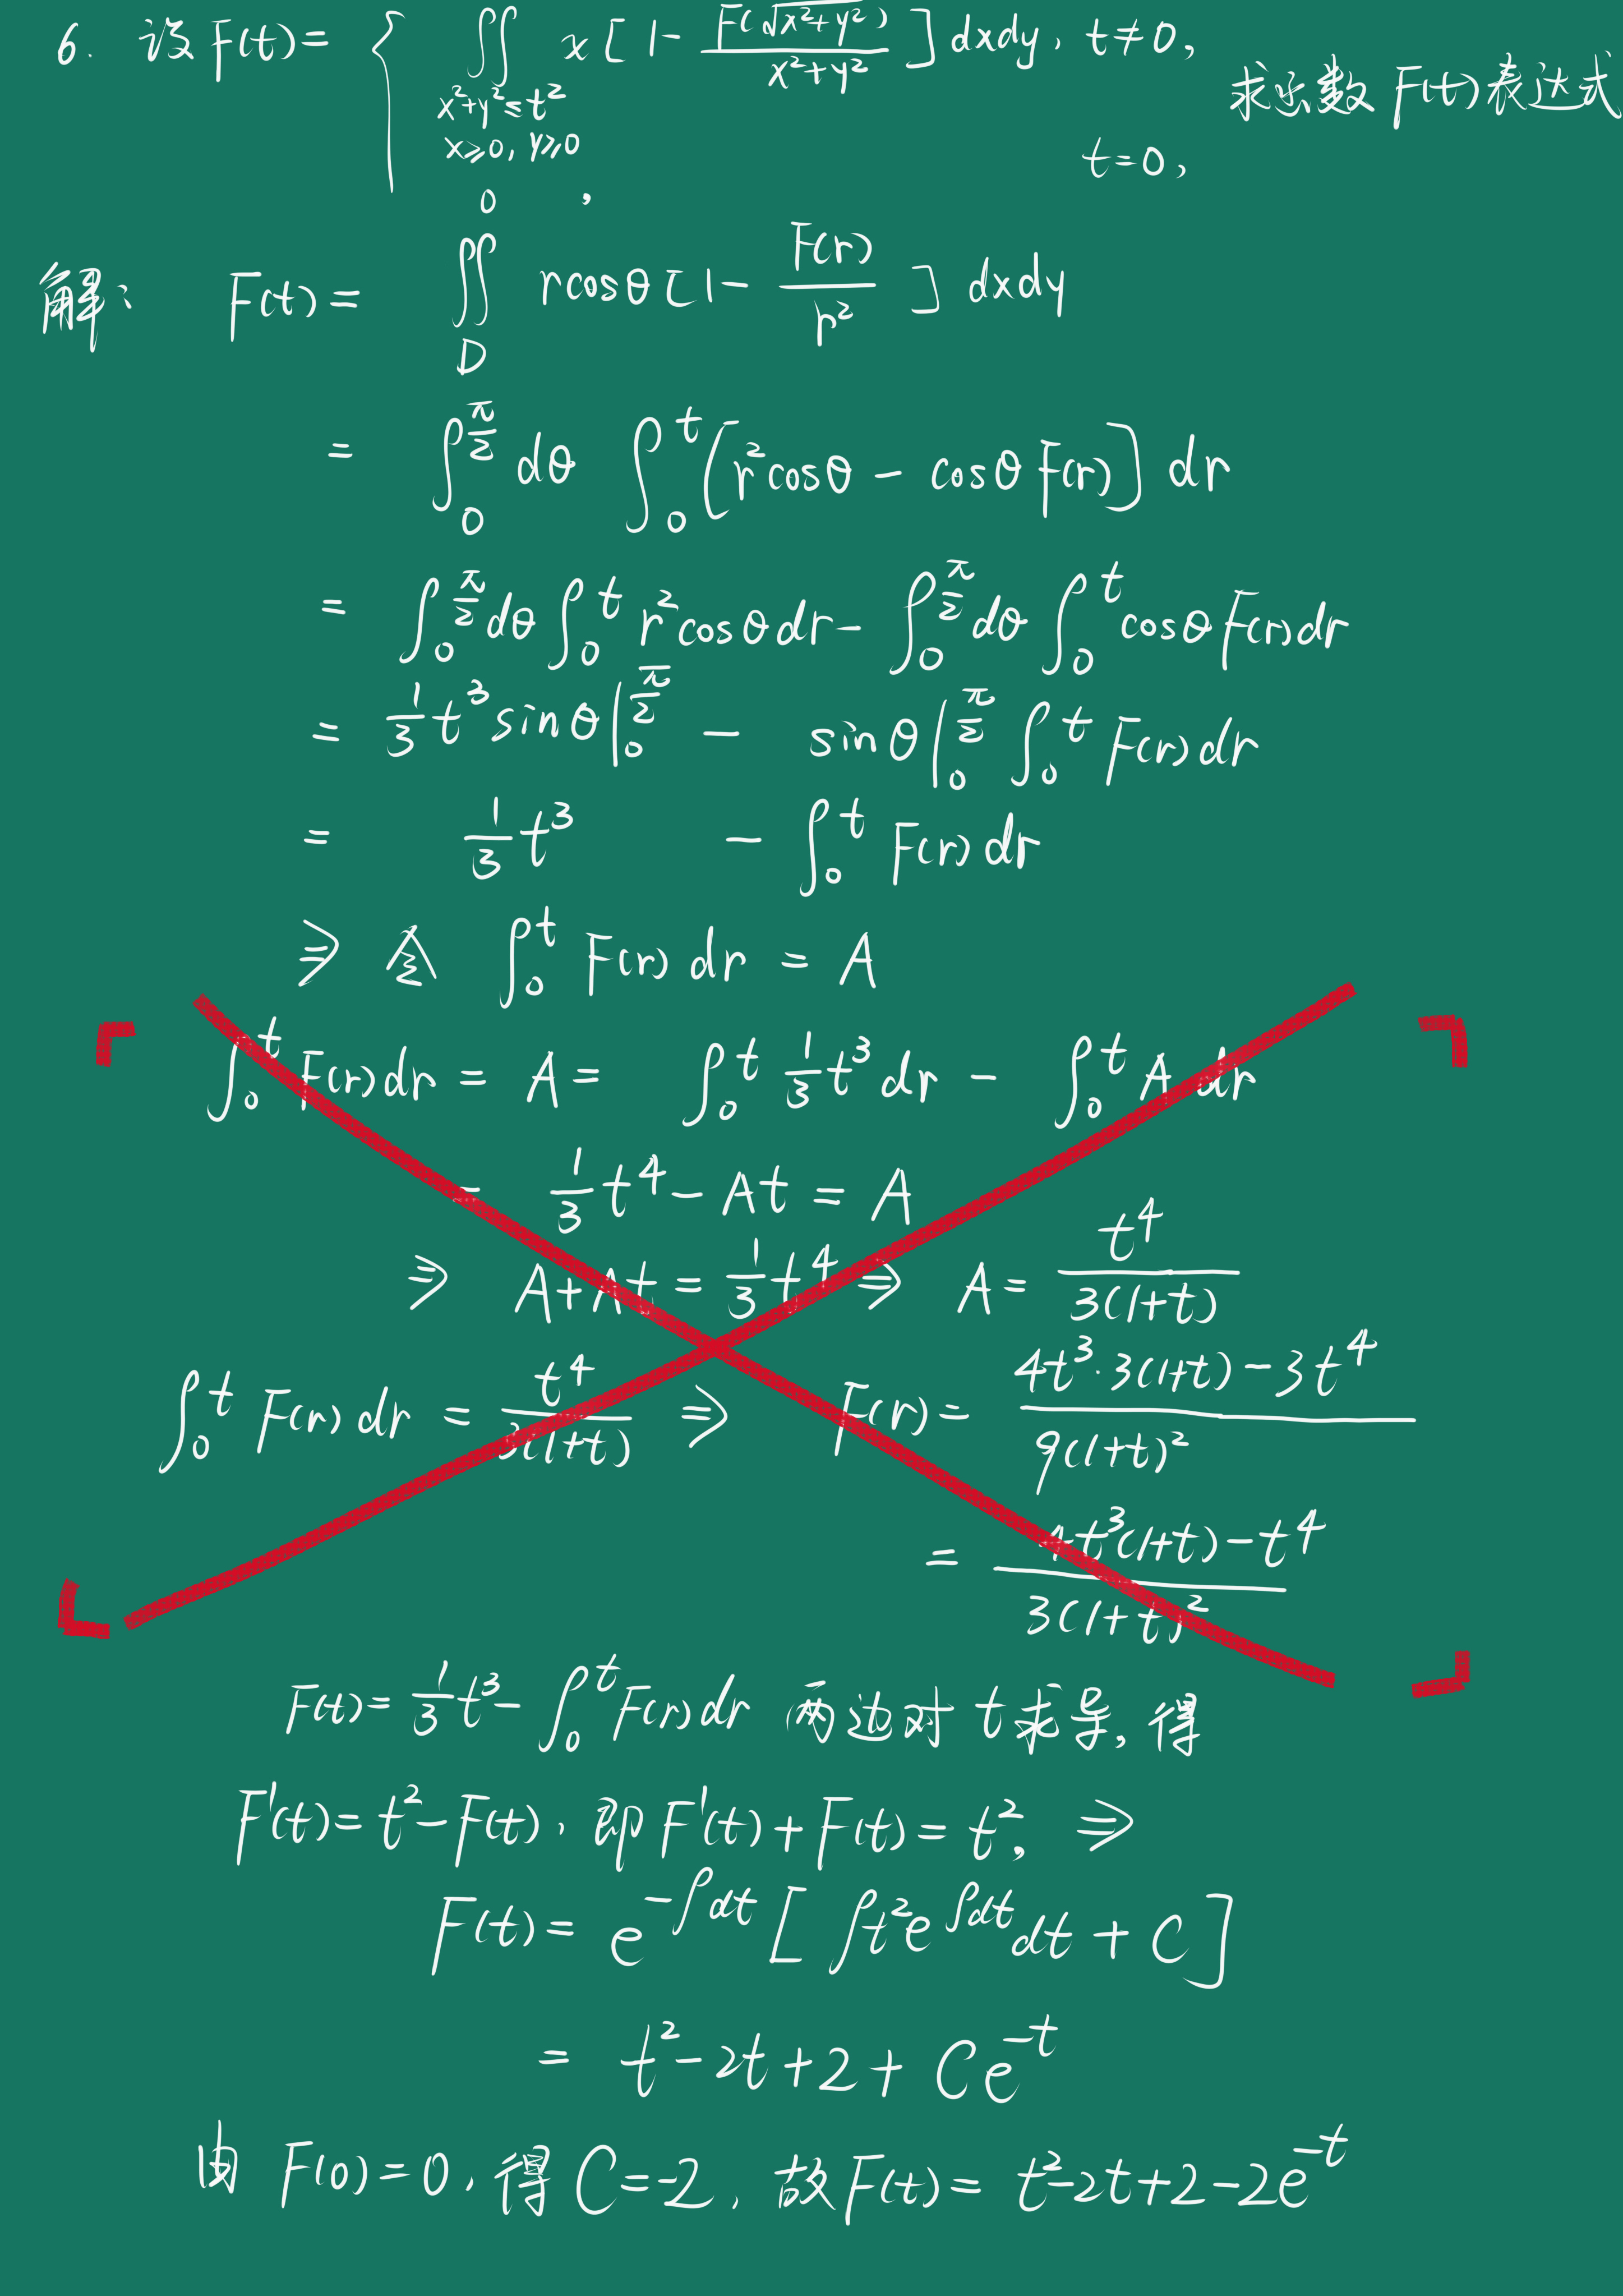 6. 设 F(t)= { ∬ x[1-F(√x²+y²)/x²+y²]dxdy, t≠0,
x²+y²≤t²
x≥0, y≥0
求函数 F(t) 表达式
0, t=0,
解: F(t)= ∬_D rcosθ[1-F(r)/r²]dxdy
= ∫_0^{π/2} dθ ∫_0^t [r²cosθ - cosθF(r)] dr
= ∫_0^{π/2} dθ ∫_0^t r²cosθdr - ∫_0^{π/2} dθ ∫_0^t cosθF(r)dr
= 1/3 t³ sinθ|_0^{π/2} - sinθ|_0^{π/2} ∫_0^t F(r)dr
= 1/3 t³ - ∫_0^t F(r)dr
⇒ 令 ∫_0^t F(r)dr = A
∫_0^t F(r)dr = A = ∫_0^t 1/3 t³ dr - ∫_0^t A dr
= 1/3 t⁴ - At = A
⇒ A+At = 1/3 t⁴ ⇒ A = t⁴/3(1+t)
∫_0^t F(r)dr = t⁴/3(1+t) ⇒ F(r) = 4t³·3(1+t)-3t⁴/9(1+t)²
= 4t³(1+t)-t⁴/3(1+t)²
F(t)= 1/3 t³ - ∫_0^t F(r)dr 两边对 t 求导, 得
F'(t)= t²-F(t), 即 F'(t)+F(t)= t², ⇒
F(t)= e^{-∫dt}[∫t²e^{∫dt}dt + C]
= t²-2t+2+Ce^{-t}
由 F(0)=0, 得 C=-2, 故 F(t)= t²-2t+2-2e^{-t}